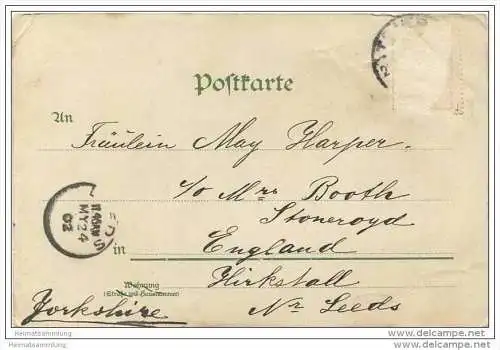 Postkarte
An
Fräulein May Harper.
c/o Mrs Booth
Stoneroyd
in England
Kirkstall
Wohnung
(Straße und Hausnummer)
Yorkshire
Nr Leeds
LEEDS
11.45AM
MY 24
02
Heimatsammlung.com
Heimatsammlung.com
www.delcampe.net